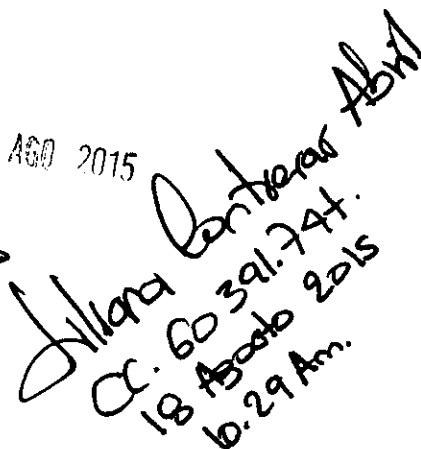 AGO 2015
Liliana Contreras Abril
CC. 60 391.747.
18 Agosto 2015
10.29 Am.